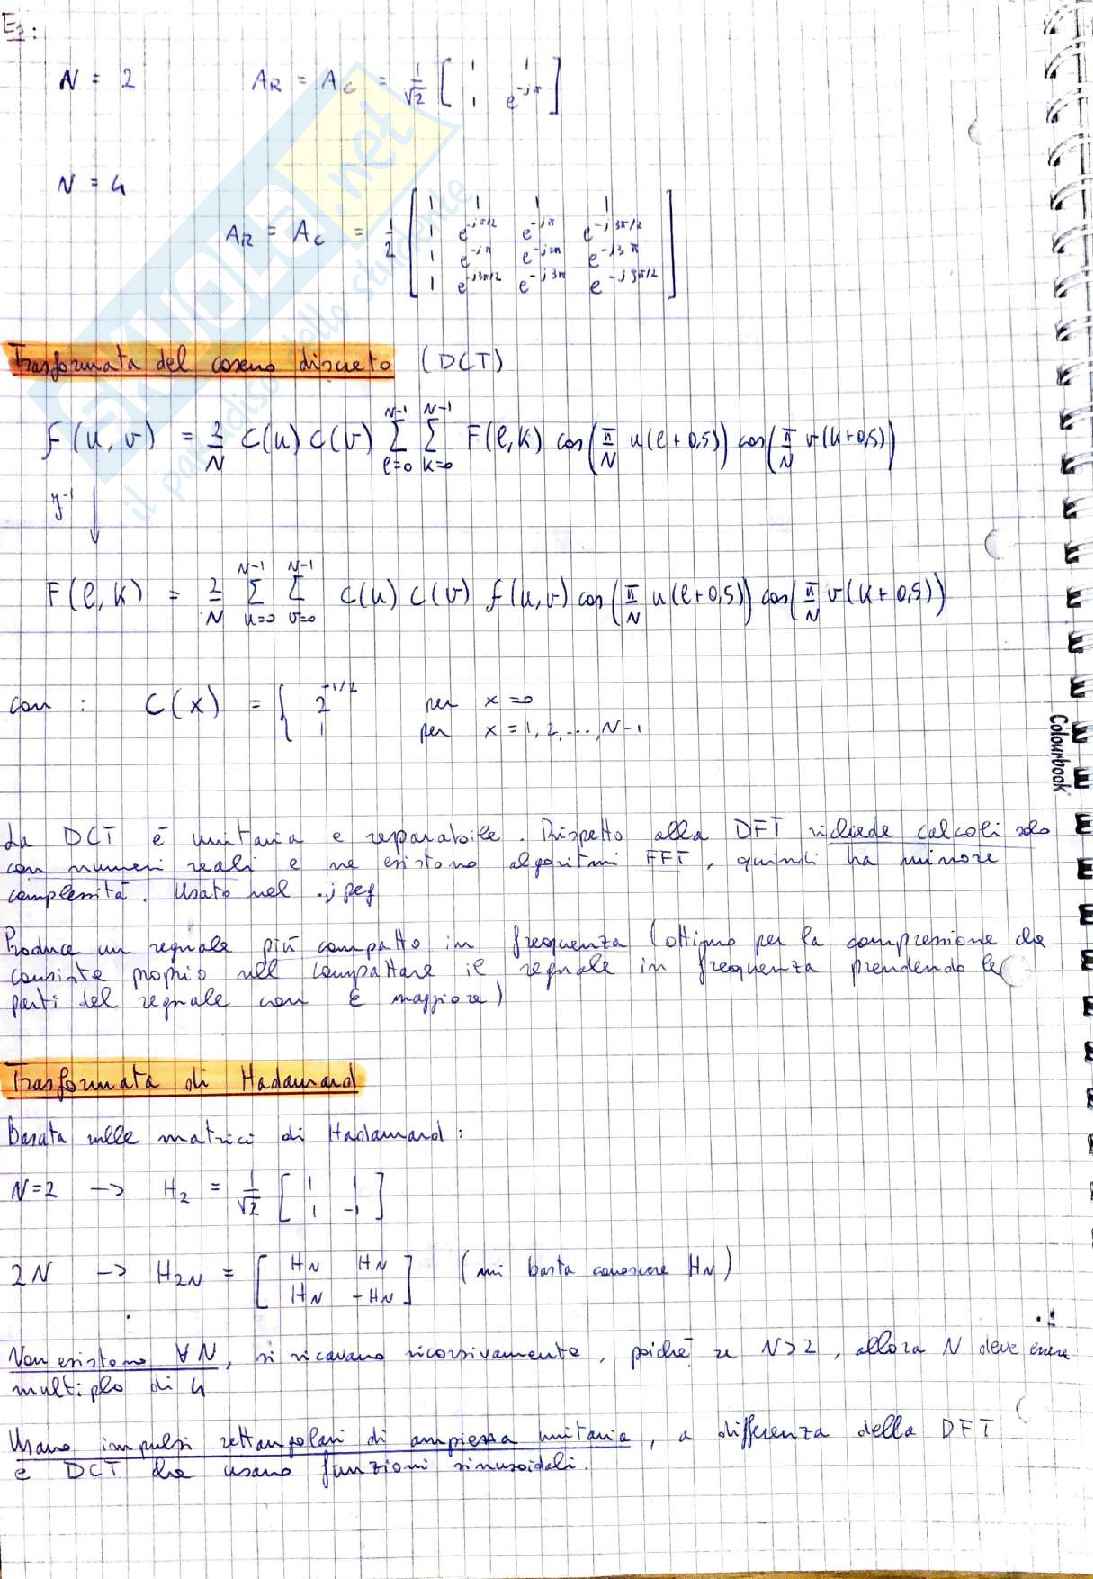 Es:
N = 2 A_R = A_C = 1/√2 [ 1 1
1 e^-jπ ]
N = 4
A_R = A_C = 1/2 [ 1 1 1 1
1 e^-jπ/2 e^-jπ e^-j3π/2
1 e^-jπ e^-j2π e^-j3π
1 e^-j3π/2 e^-j3π e^-j9π/2 ]
Trasformata del coseno discreto (DCT)
f(u,v) = 2/N C(u) C(v) Σ_{l=0}^{N-1} Σ_{k=0}^{N-1} F(l,k) cos(π/N u(l+0,5)) cos(π/N v(k+0,5))
y^-1 ↓
F(l,k) = 2/N Σ_{u=0}^{N-1} Σ_{v=0}^{N-1} C(u) C(v) f(u,v) cos(π/N u(l+0,5)) cos(π/N v(k+0,5))
con : C(x) = { 2^-1/2 per x=0
1 per x=1,2,...,N-1
La DCT è unitaria e separabile. Rispetto alla DFT richiede calcoli solo
con numeri reali e ne esistono algoritmi FFT, quindi ha minore
complessità. Usato nel .jpeg
Produce un segnale più compatto in frequenza (ottimo per la compressione che
consiste proprio nel compattare il segnale in frequenza prendendo le
parti del segnale con E maggiore)
Trasformata di Hadamard
Basata sulle matrici di Hadamard:
N=2 -> H_2 = 1/√2 [ 1 1
1 -1 ]
2N -> H_2N = [ H_N H_N
H_N -H_N ] (mi basta conoscere H_N)
Non esistono ∀N, si ricavano ricorsivamente, poiché se N>2, allora N deve essere
multiplo di 4
Usano impulsi rettangolari di ampiezza unitaria, a differenza della DFT
e DCT che usano funzioni sinusoidali.
Colourbook
SKUOLA.net
il paradiso dello studente